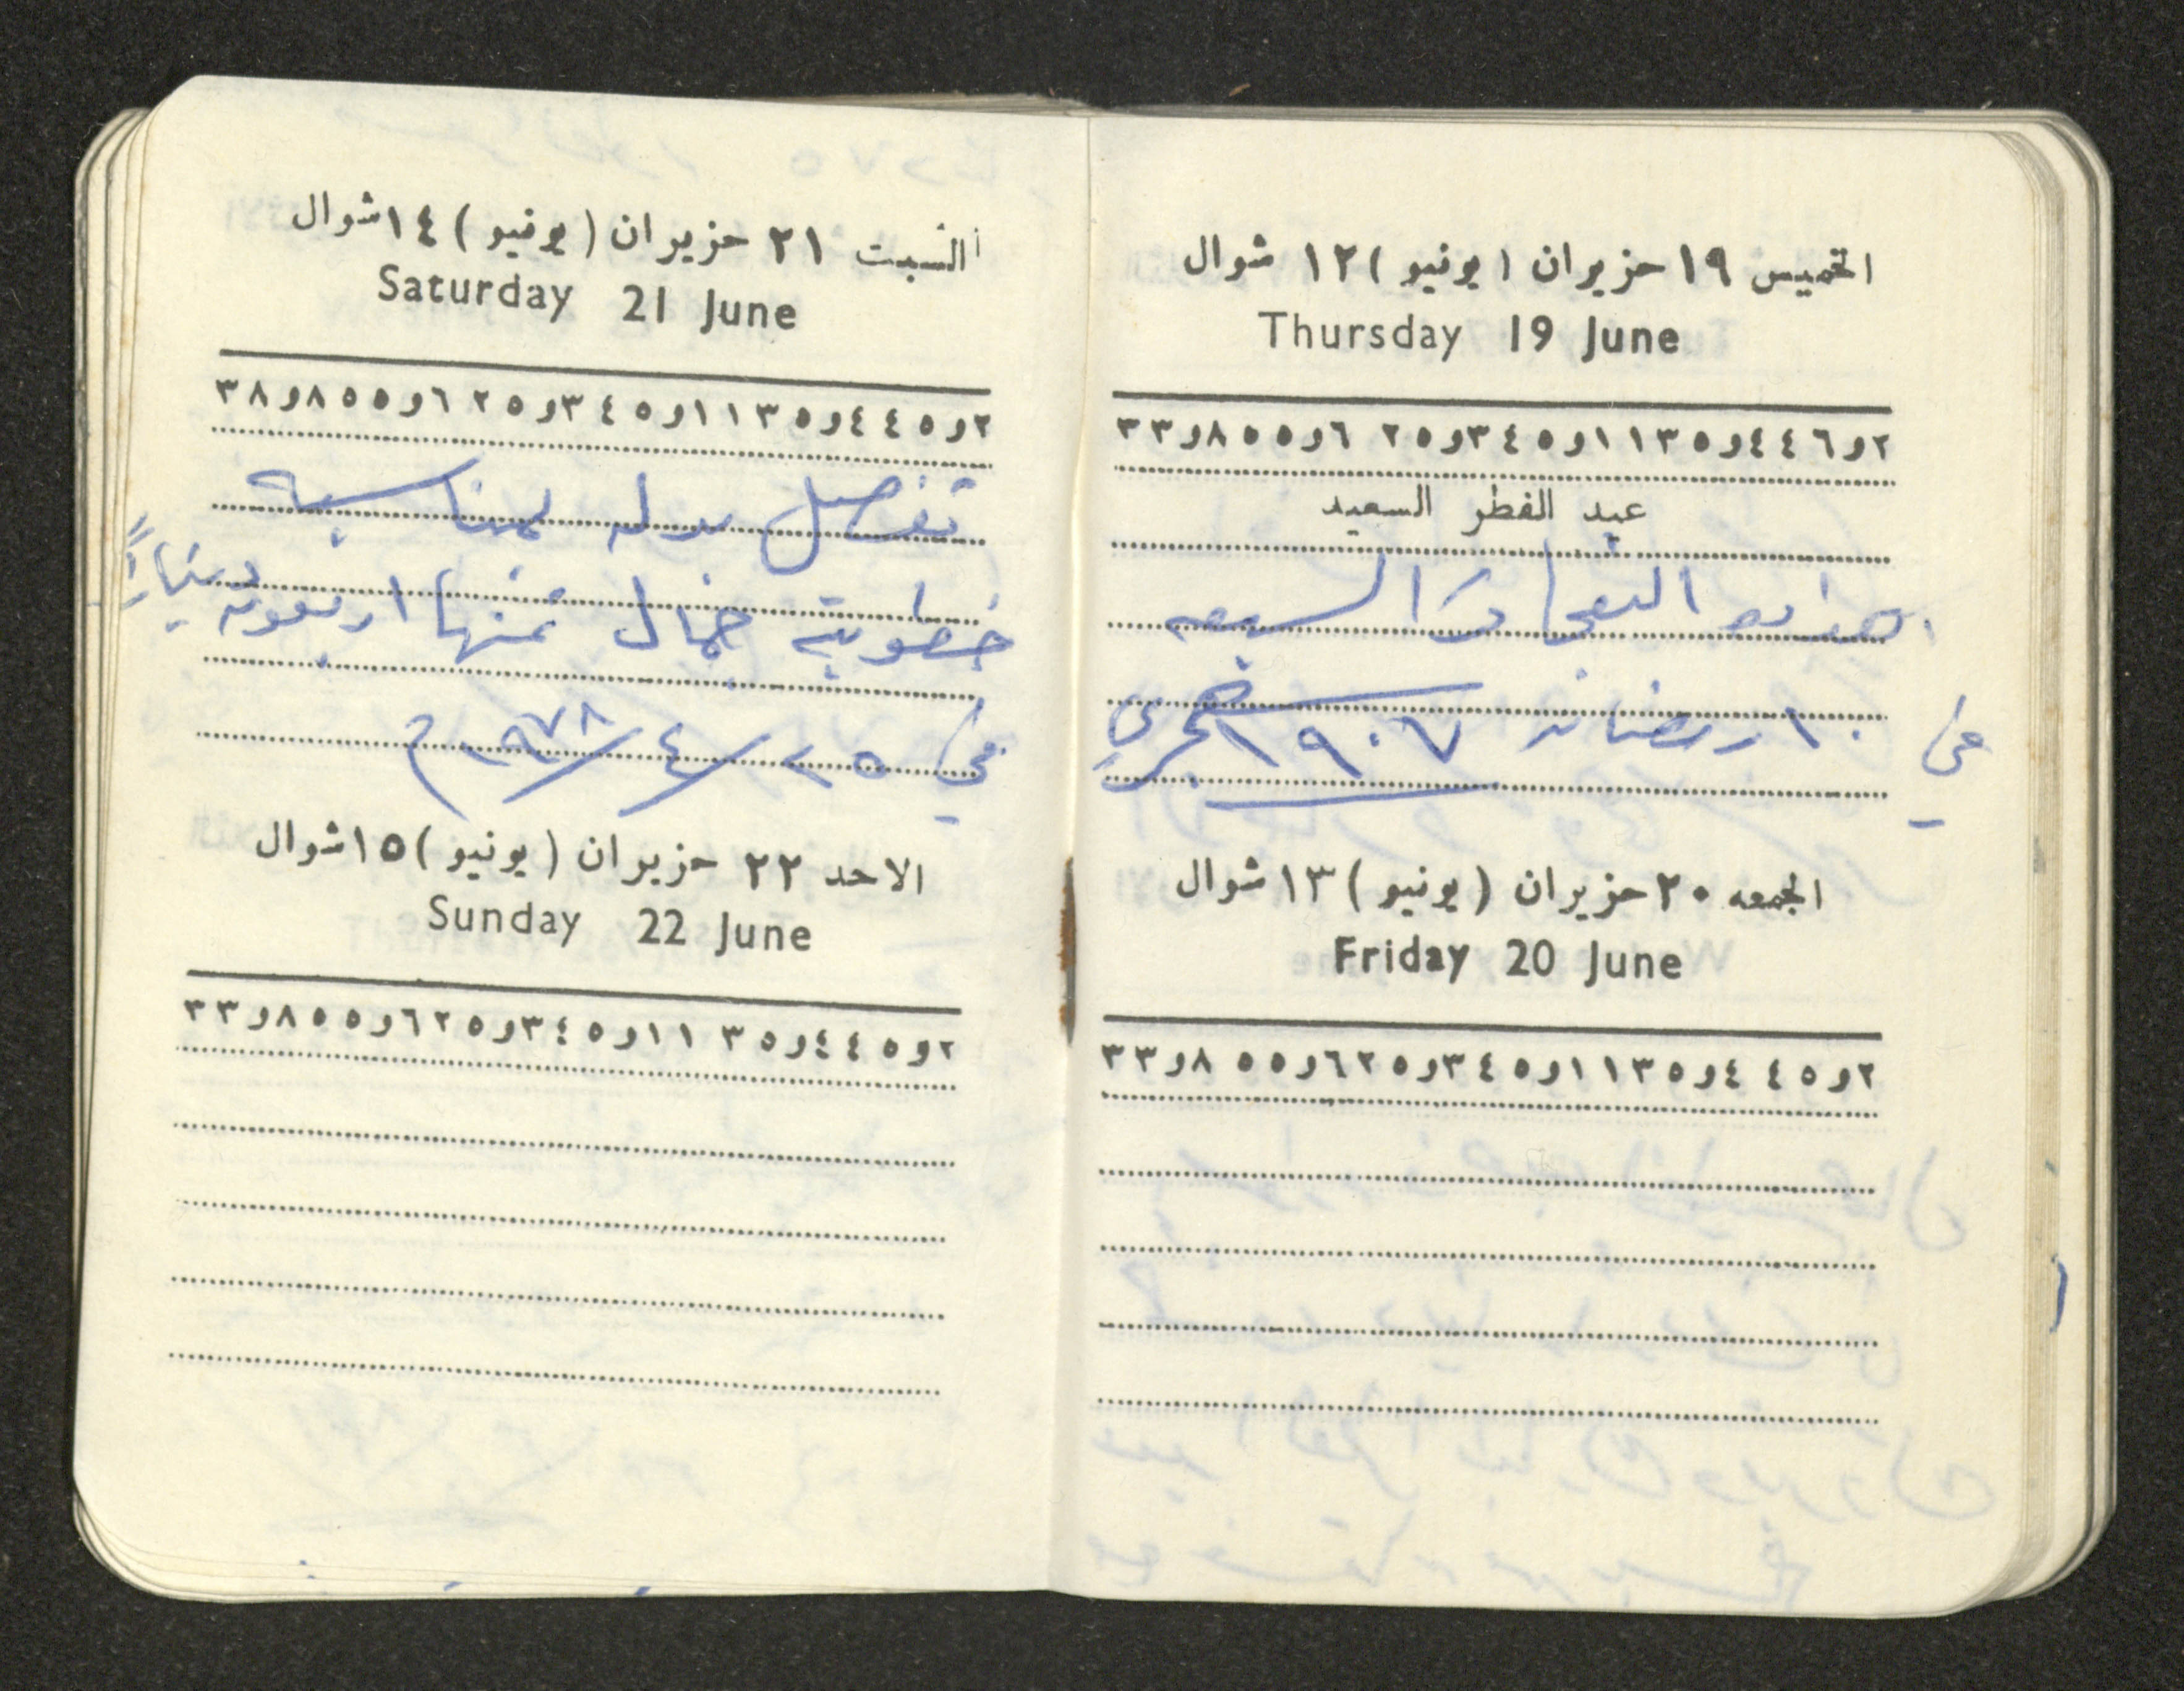 الخميس ١٩ حزيران (يونيو) ١٢ شوال
Thursday 19 June
٢و٦ ٤ ٤و٥ ٣ ١ ١و٥ ٤ ٣و٥ ٢ ٦و٥ ٥ ٨و٣ ٣
عيد الفطر السعيد
السبعه
في ١٠ رمضان ١٩٠٧ هجري
الجمعه ٢٠ حزيران (يونيو) ١٣ شوال
Friday 20 June
٢و٥ ٤ ٤و٥ ٣ ١ ١و٥ ٤ ٣و٥ ٢ ٦و٥ ٥ ٨و٣ ٣
السبت ٢١ حزيران (يونيو) ١٤ شوال
Saturday 21 June
٢و٥ ٤ ٤و٥ ٣ ١ ١و٥ ٤ ٣و٥ ٢ ٦و٥ ٥ ٨و٨ ٣
تفصيل بدله لمناسبة
خطوبة جمال ثمنها اربعون ديناراً
في ٢٥/٤/١٩٧٨م
الاحد ٢٢ حزيران (يونيو) ١٥ شوال
Sunday 22 June
٢و٥ ٤ ٤و٥ ٣ ١ ١و٥ ٤ ٣و٥ ٢ ٦و٥ ٥ ٨و٣ ٣